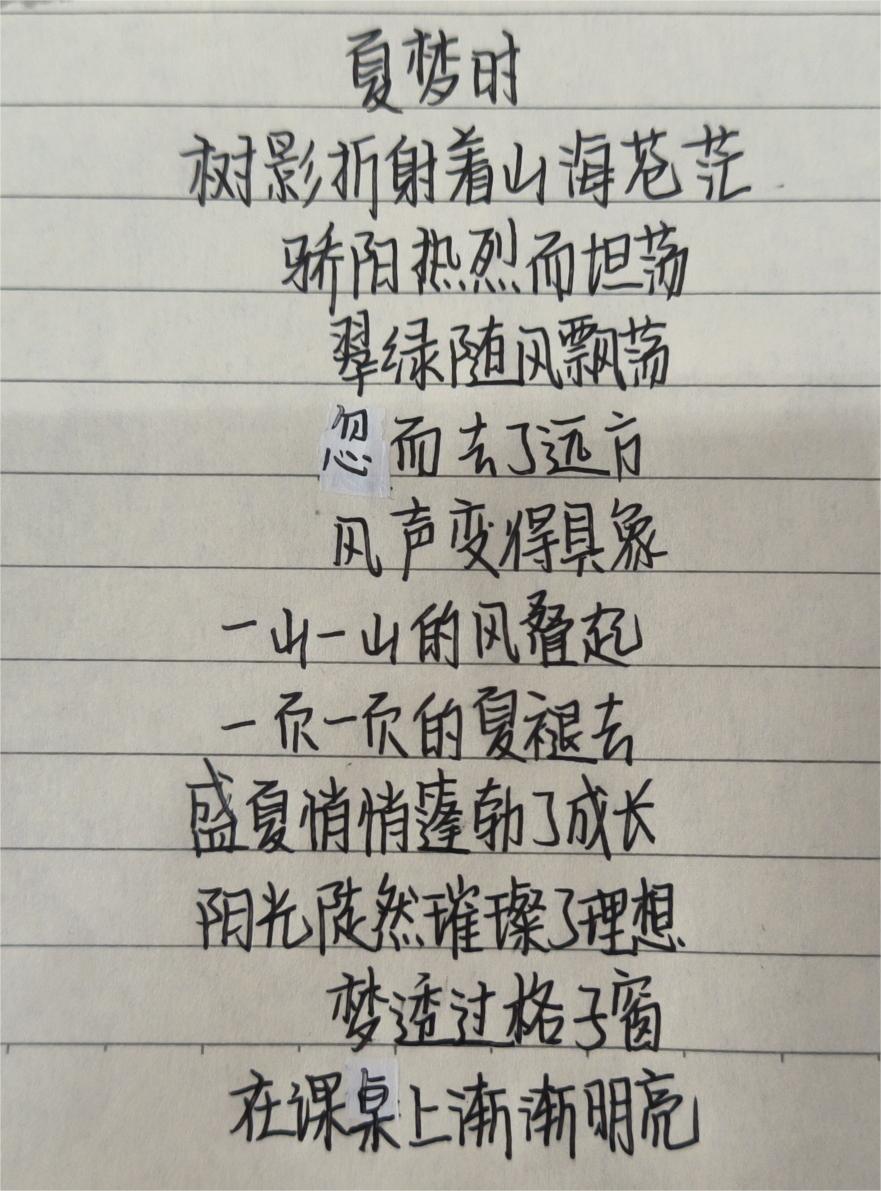 夏梦时
树影折射着山海苍茫
骄阳热烈而坦荡
翠绿随风飘荡
忽而去了远方
风声变得具象
一山一山的风叠起
一页一页的夏褪去
盛夏悄悄蓬勃了成长
阳光陡然璀璨了理想
梦透过格子窗
在课桌上渐渐明亮